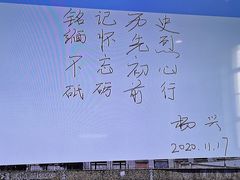 铭记历史
缅怀先烈
不忘初心
砥砺前行
杨兴
2020.11.17